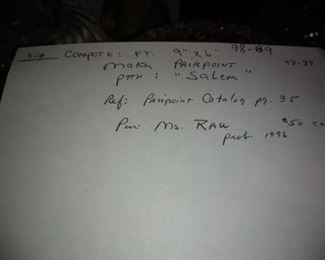 COMPOTE: FT. 9" X 6" 98-89
MAKER PAIRPOINT 92-89
PTTN: "Salem"
Ref: Pairpoint Catalog pg. 35
Pur: Ms. RAU $50
prob. 1996